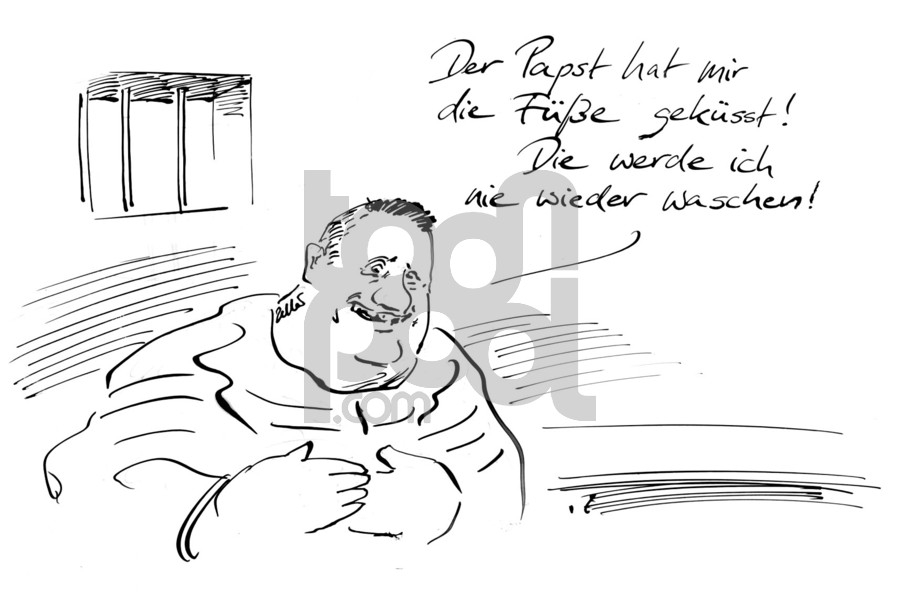 Der Papst hat mir
die Füße geküsst!
Die werde ich
nie wieder waschen!
toonpool
.com